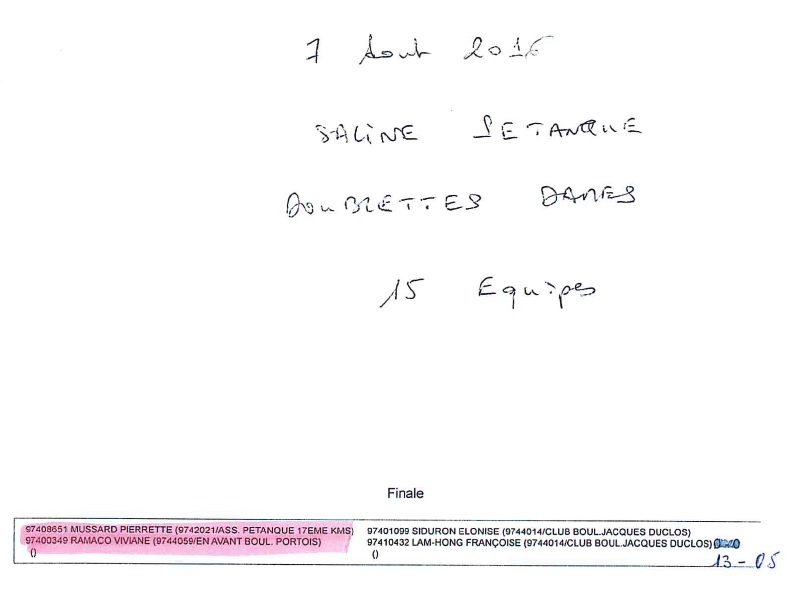 7 Aout 2016
SALINE PETANQUE
DOUBLETTES DAMES
15 Equipes
Finale
97408651 MUSSARD PIERRETTE (9742021/ASS. PETANQUE 17EME KMS) 97401099 SIDURON ELONISE (9744014/CLUB BOUL.JACQUES DUCLOS)
97400349 RAMACO VIVIANE (9744059/EN AVANT BOUL. PORTOIS) 97410432 LAM-HONG FRANÇOISE (9744014/CLUB BOUL.JACQUES DUCLOS)
() ()
13 - 05